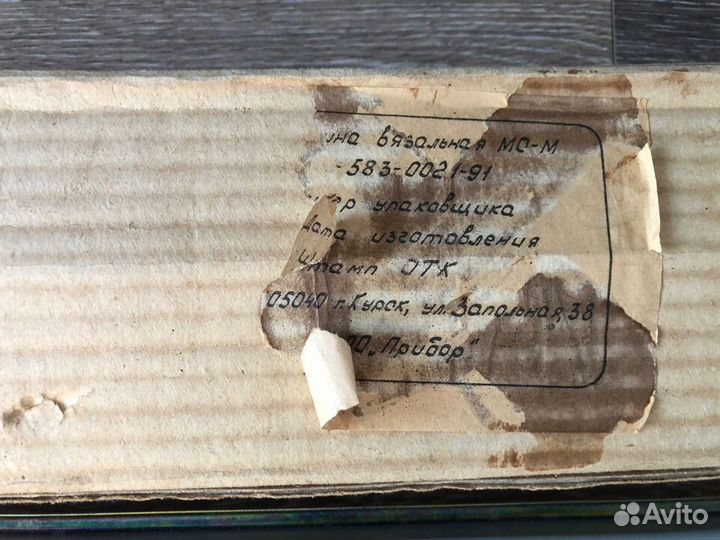 вязальная МО-М
-583-0021-91
упаковщика
Дата изготовления
Штамп ОТК
05040 г. Курск, ул. Запольная, 38
„Прибор"
Avito